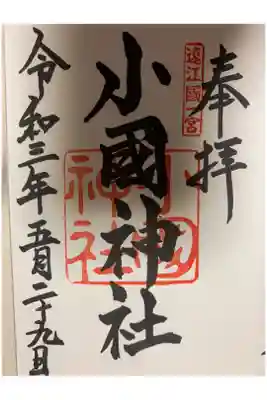 奉拝
遠江國一宮
小國神社
小國神社
令和三年五月二十九日